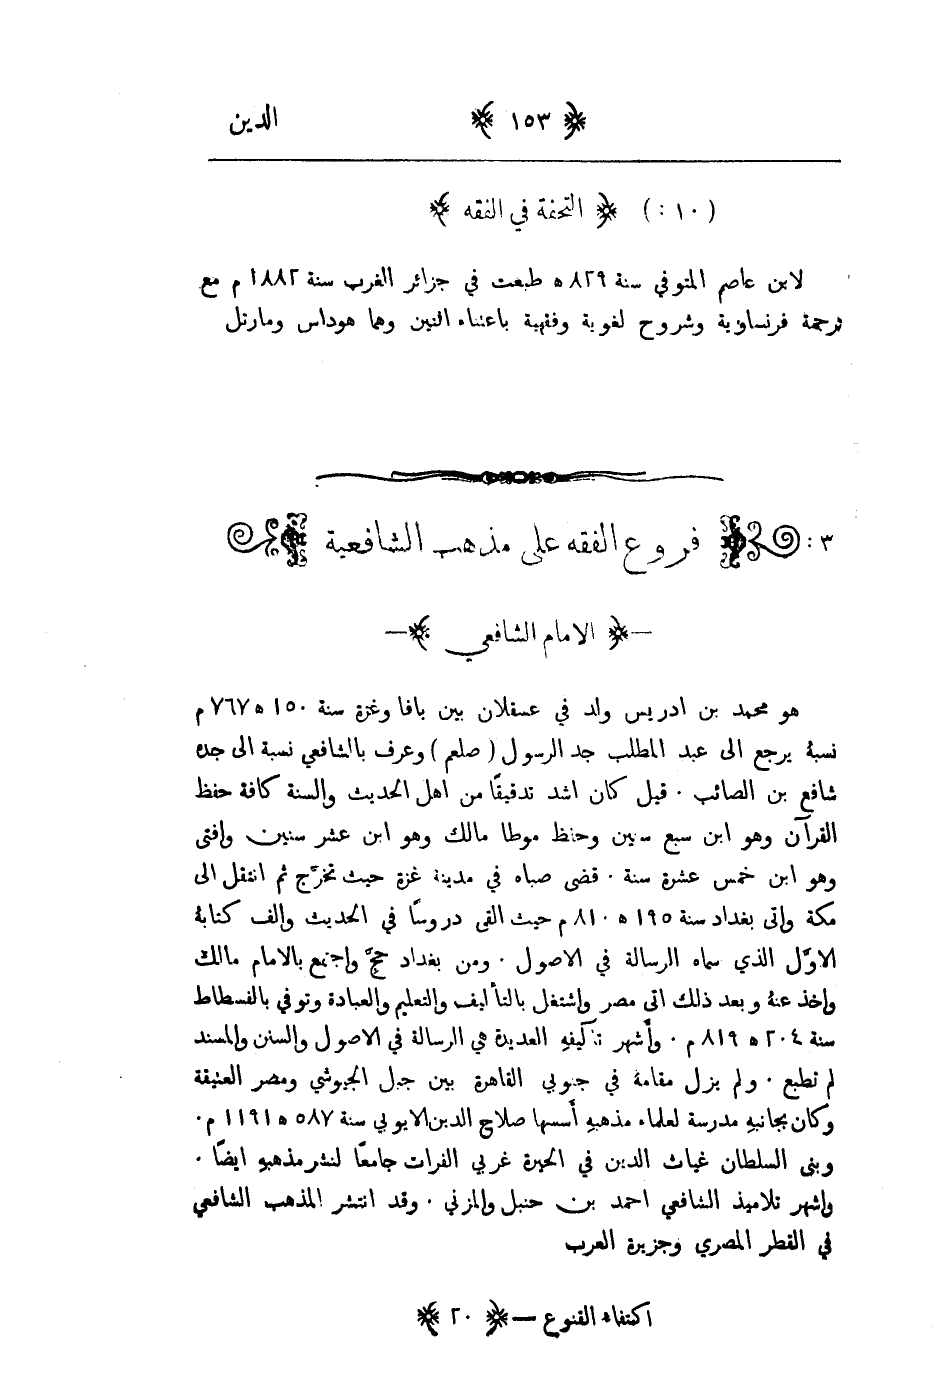 الدين ﴿ ١٥٣ ﴾
(١٠:) ﴿ التحفة في الفقه ﴾
لابن عاصم المتوفي سنة ٨٢٩ ه طبعت في جزائر الغرب سنة ١٨٨٢ م مع
ترجمة فرنساوية وشروح لغوية وفقهية باعتناء اثنين وهما هوداس ومارتل
٣: ﴿ فروع الفقه على مذهب الشافعية ﴾
—﴿ الامام الشافعي ﴾—
هو محمد بن ادريس ولد في عسقلان بين يافا وغزة سنة ١٥٠ ه ٧٦٧ م
نسبهُ يرجع الى عبد المطلب جد الرسول ( صلعم ) وعرف بالشافعي نسبة الى جده
شافع بن الصائب ٠ قيل كان اشد تدقيقًا من اهل الحديث والسنة كافة حفظ
القرآن وهو ابن سبع سنين وحفظ موطا مالك وهو ابن عشر سنين وافتى
وهو ابن خمس عشرة سنة ٠ قضى صباه في مدينة غزة حيث تخرّج ثم انتقل الى
مكة واتى بغداد سنة ١٩٥ ه ٨١٠ م حيث القى دروسًا في الحديث والف كتابهُ
الاوّل الذي سماه الرسالة في الاصول ٠ ومن بغداد حجّ واجتمع بالامام مالك
واخذ عنهُ وبعد ذلك اتى مصر واشتغل بالتأليف والتعليم والعبادة وتوفي بالفسطاط
سنة ٢٠٤ ه ٨١٩ م ٠ وأشهر تآليفهِ العديدة هي الرسالة في الاصول والسنن والمسند
لم تطبع ٠ ولم يزل مقامهُ في جنوبي القاهرة بين جبل الجيوشي ومصر العتيقة
وكان بجانبهِ مدرسة لعلماء مذهبهِ أسسها صلاح الدين الايوبي سنة ٥٨٧ ه ١١٩١ م٠
وبنى السلطان غياث الدين في الحيرة غربي الفرات جامعًا لنشر مذهبهِ ايضًا ٠
واشهر تلاميذ الشافعي احمد بن حنبل والمزني ٠ وقد انتشر المذهب الشافعي
في القطر المصري وجزيرة العرب
اكتفاء القنوع — ﴿ ٢٠ ﴾